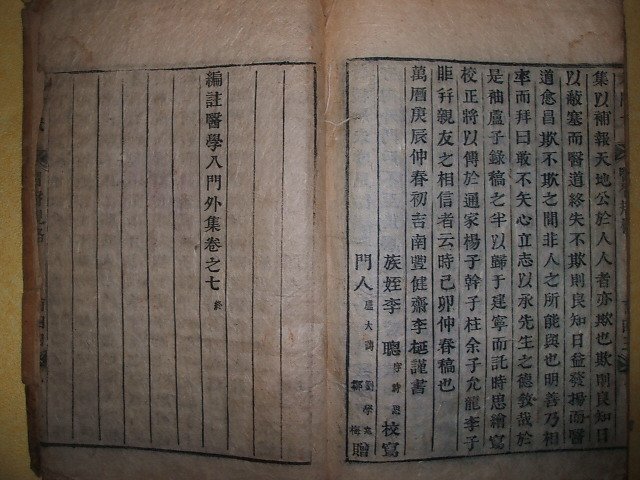 集以補報天地公於人人者亦欺也欺則良知日
以蔽塞而醫道終失不欺則良知日益發揚而醫
道愈昌欺不欺之間非人之所能與也明善乃相
率而拜曰敢不矢心立志以永先生之德教哉於
是袖盧子錄稿之半以歸于建寧而託時思繪寫
校正將以傳於通家楊子幹子柱余子允龍李子
並親友之相信者云時己卯仲春稿也
萬曆庚辰仲春初吉南豐健齋李梴謹書
族姪李 聰 校寫
門人 贈
編註醫學入門外集卷之七 終